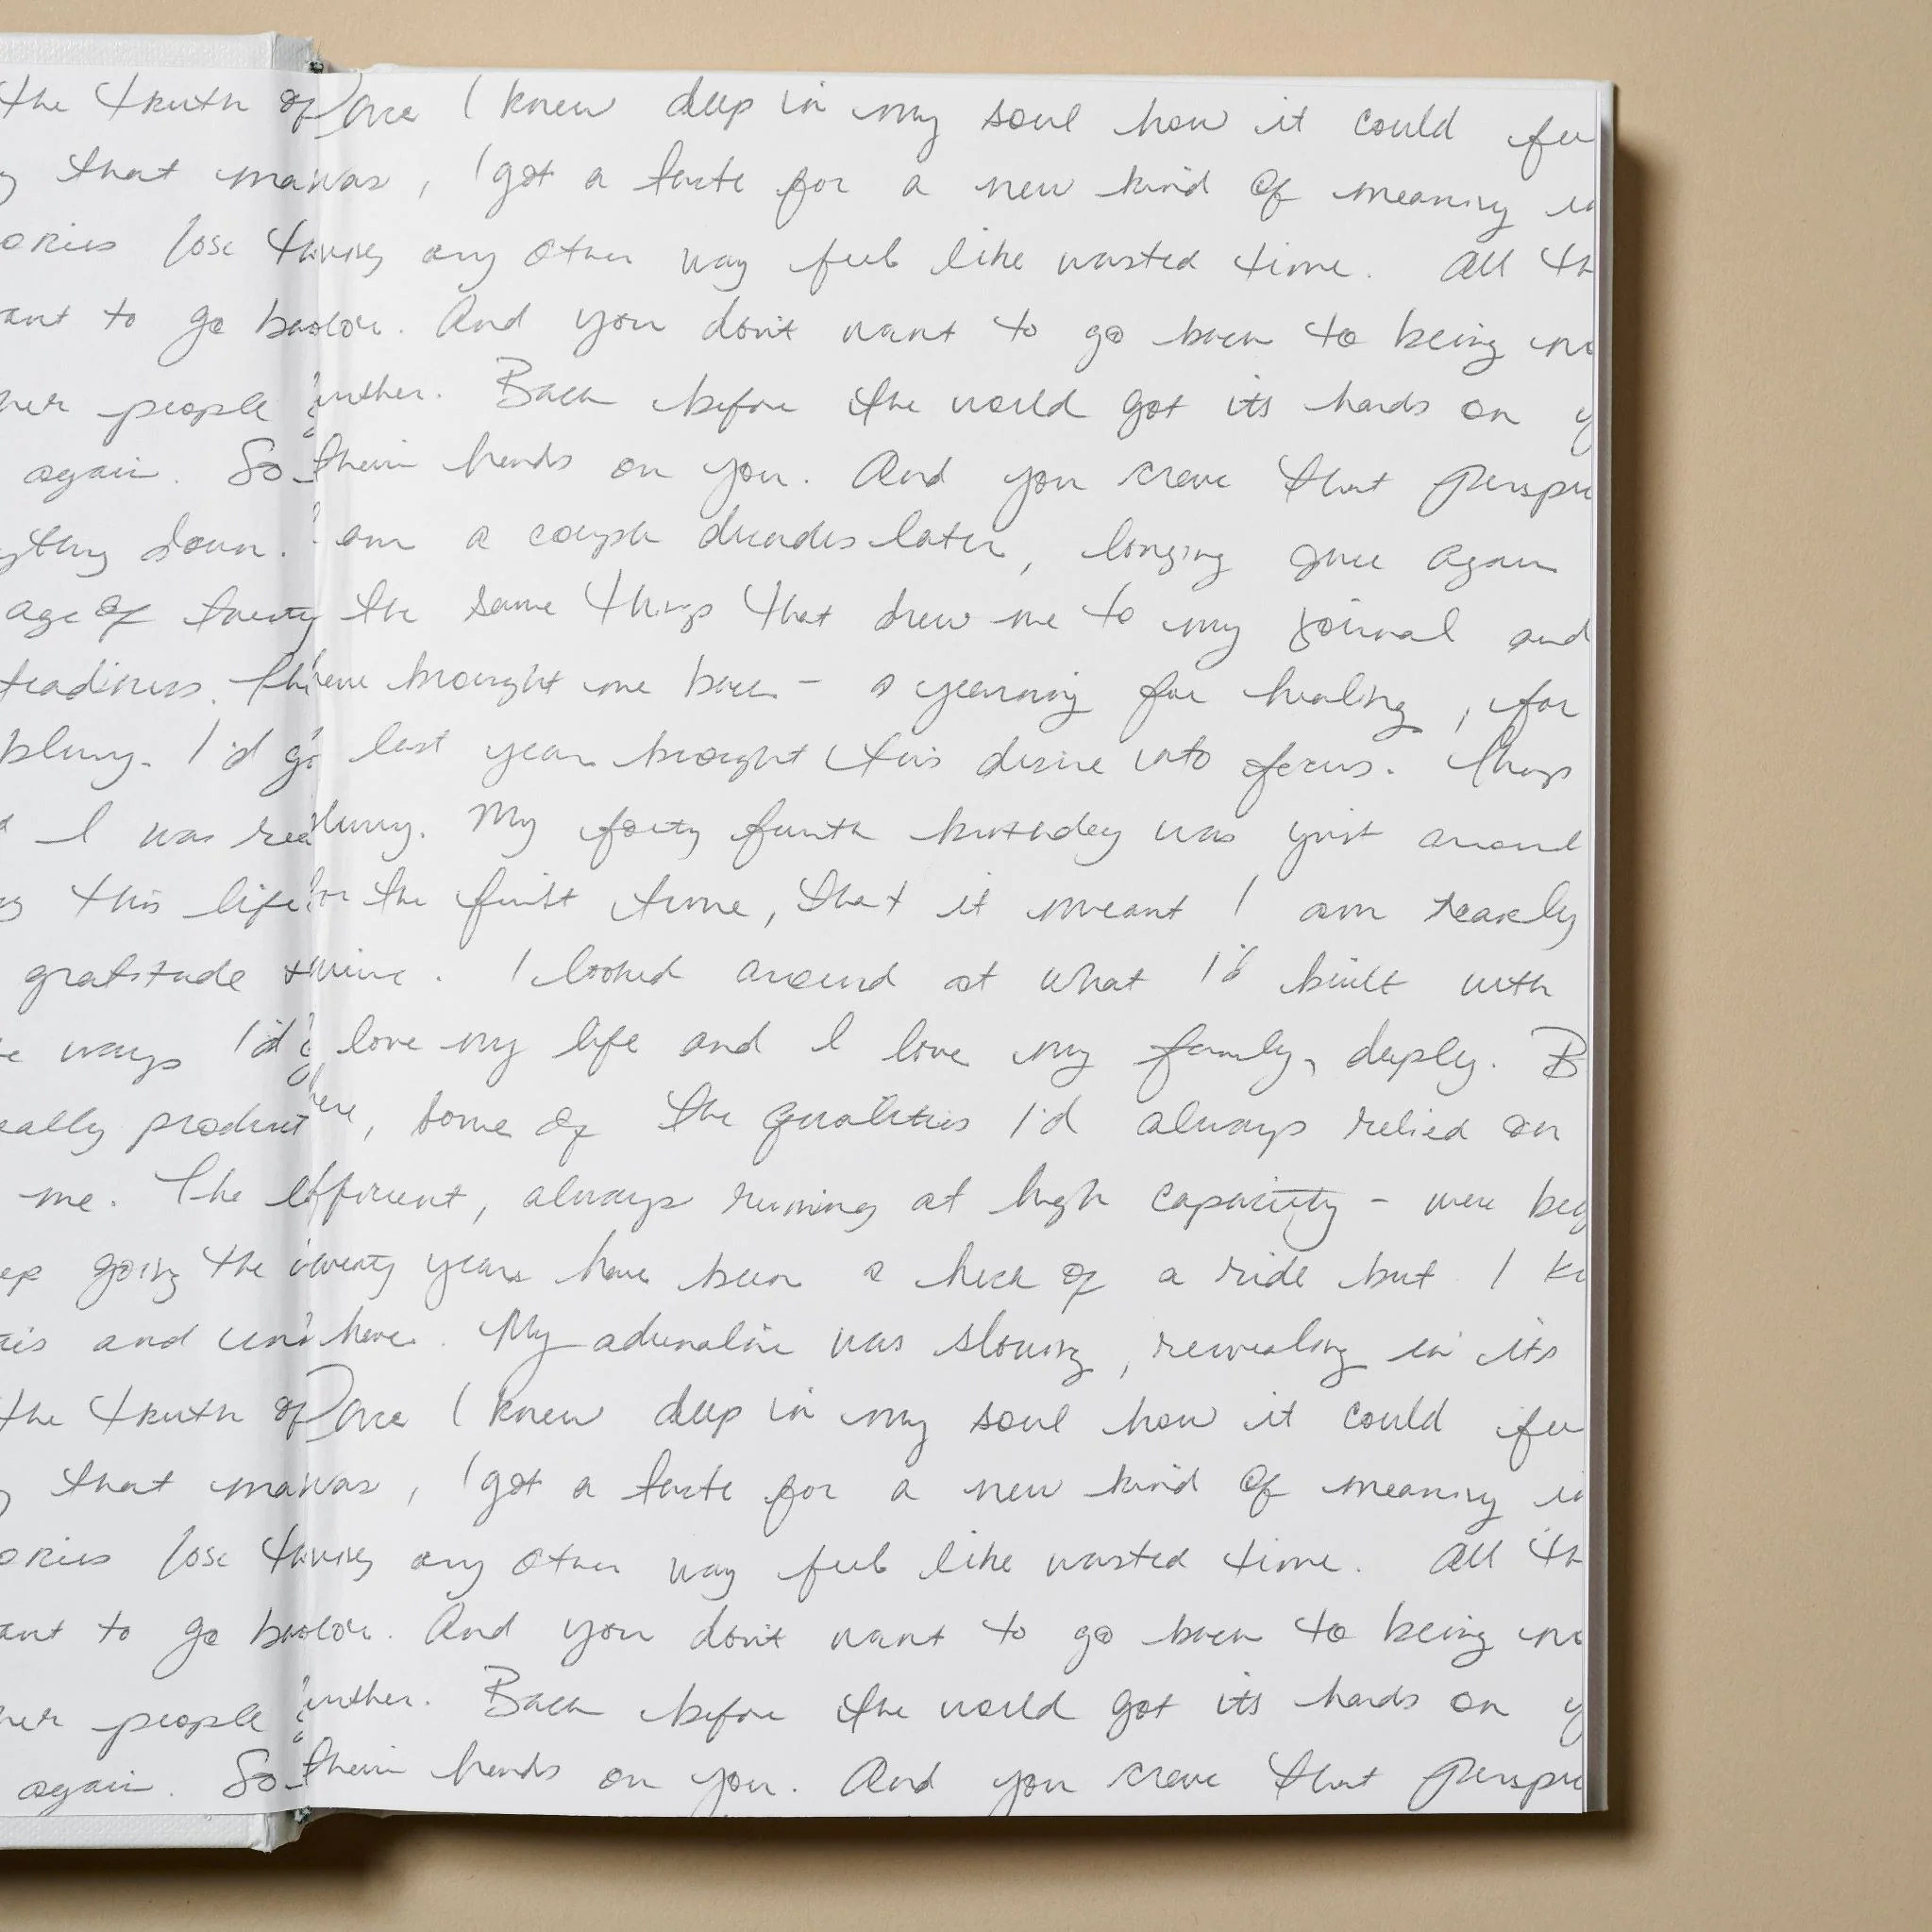 the truth of Once I knew deep in my soul how it could
that was, I got a taste for a new kind of meaning
lose any other way feel like wasted time. All
to go And you don't want to go back to being
people Back before the world got its hands on
again. So their hands on you. And you crave that
down. am a couple decades later, longing once again
age of twenty the same things that drew me to my journal and
brought me back - a yearning for healing, for
blurry. I'd last year brought this desire into focus. Things
I was blurry. My forty fourth birthday was just around
this life for the first time, that it meant I am
gratitude I looked around at what I'd built with
ways I'd love my life and I love my family, deeply.
here, some of the qualities I'd always relied on
me. The efficient, always running at high capacity - were
going the twenty years have been a heck of a ride but I
and here. My adrenaline was slowing, revealing in its
the truth of Once I knew deep in my soul how it could
that was, I got a taste for a new kind of meaning
lose any other way feel like wasted time. All
to go And you don't want to go back to being
people Back before the world got its hands on
again. So their hands on you. And you crave that